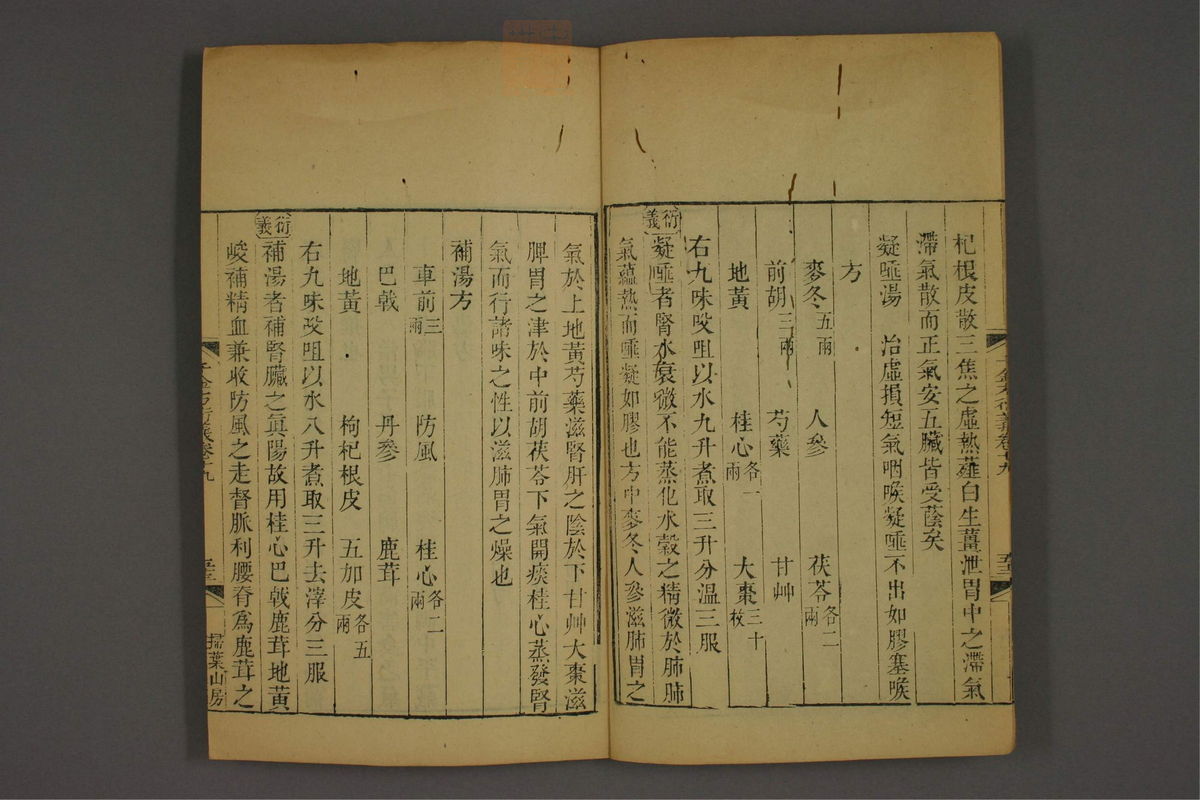 杞根皮散三焦之虛熱薤白生薑泄胃中之滯氣
滯氣散而正氣安五臟皆受蔭矣
凝唾湯　治虛損短氣咽喉凝唾不出如膠塞喉
方
麥冬五兩　人參　茯苓各二兩
前胡三兩　芍藥　甘艸
地黃　桂心各一兩　大棗三十枚
右九味㕮咀以水九升煮取三升分溫三服
衍義
凝唾者腎水衰微不能蒸化水穀之精微於肺肺
氣蘊熱而唾凝如膠也方中麥冬人參滋肺胃之
氣於上地黃芍藥滋腎肝之陰於下甘艸大棗滋
脾胃之津於中前胡茯苓下氣開痰桂心蒸發腎
氣而行諸味之性以滋肺胃之燥也
補湯方
車前三兩　防風　桂心各二兩
巴戟　丹參　鹿茸
地黃　枸杞根皮　五加皮各五兩
右九味㕮咀以水八升煮取三升去滓分三服
衍義
補湯者補腎臟之真陽故用桂心巴戟鹿茸地黃
峻補精血兼收防風之走督脈利腰脊為鹿茸之
掃葉山房